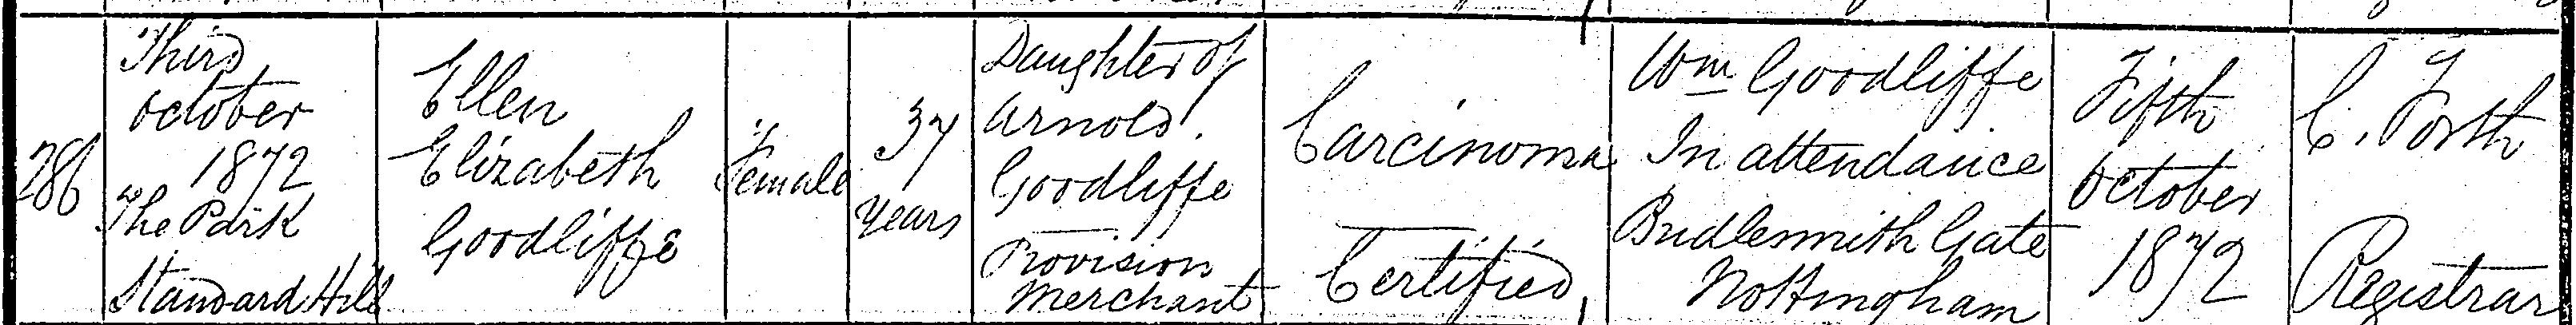 286
Third
October
1872
The Park
Standard Hill
Ellen
Elizabeth
Goodliffe
Female
37
years
Daughter of
Arnold
Goodliffe
Provision
Merchant
Carcinoma
Certified
Wm Goodliffe
In attendance
Bridlesmith Gate
Nottingham
Fifth
October
1872
C. Forth
Registrar